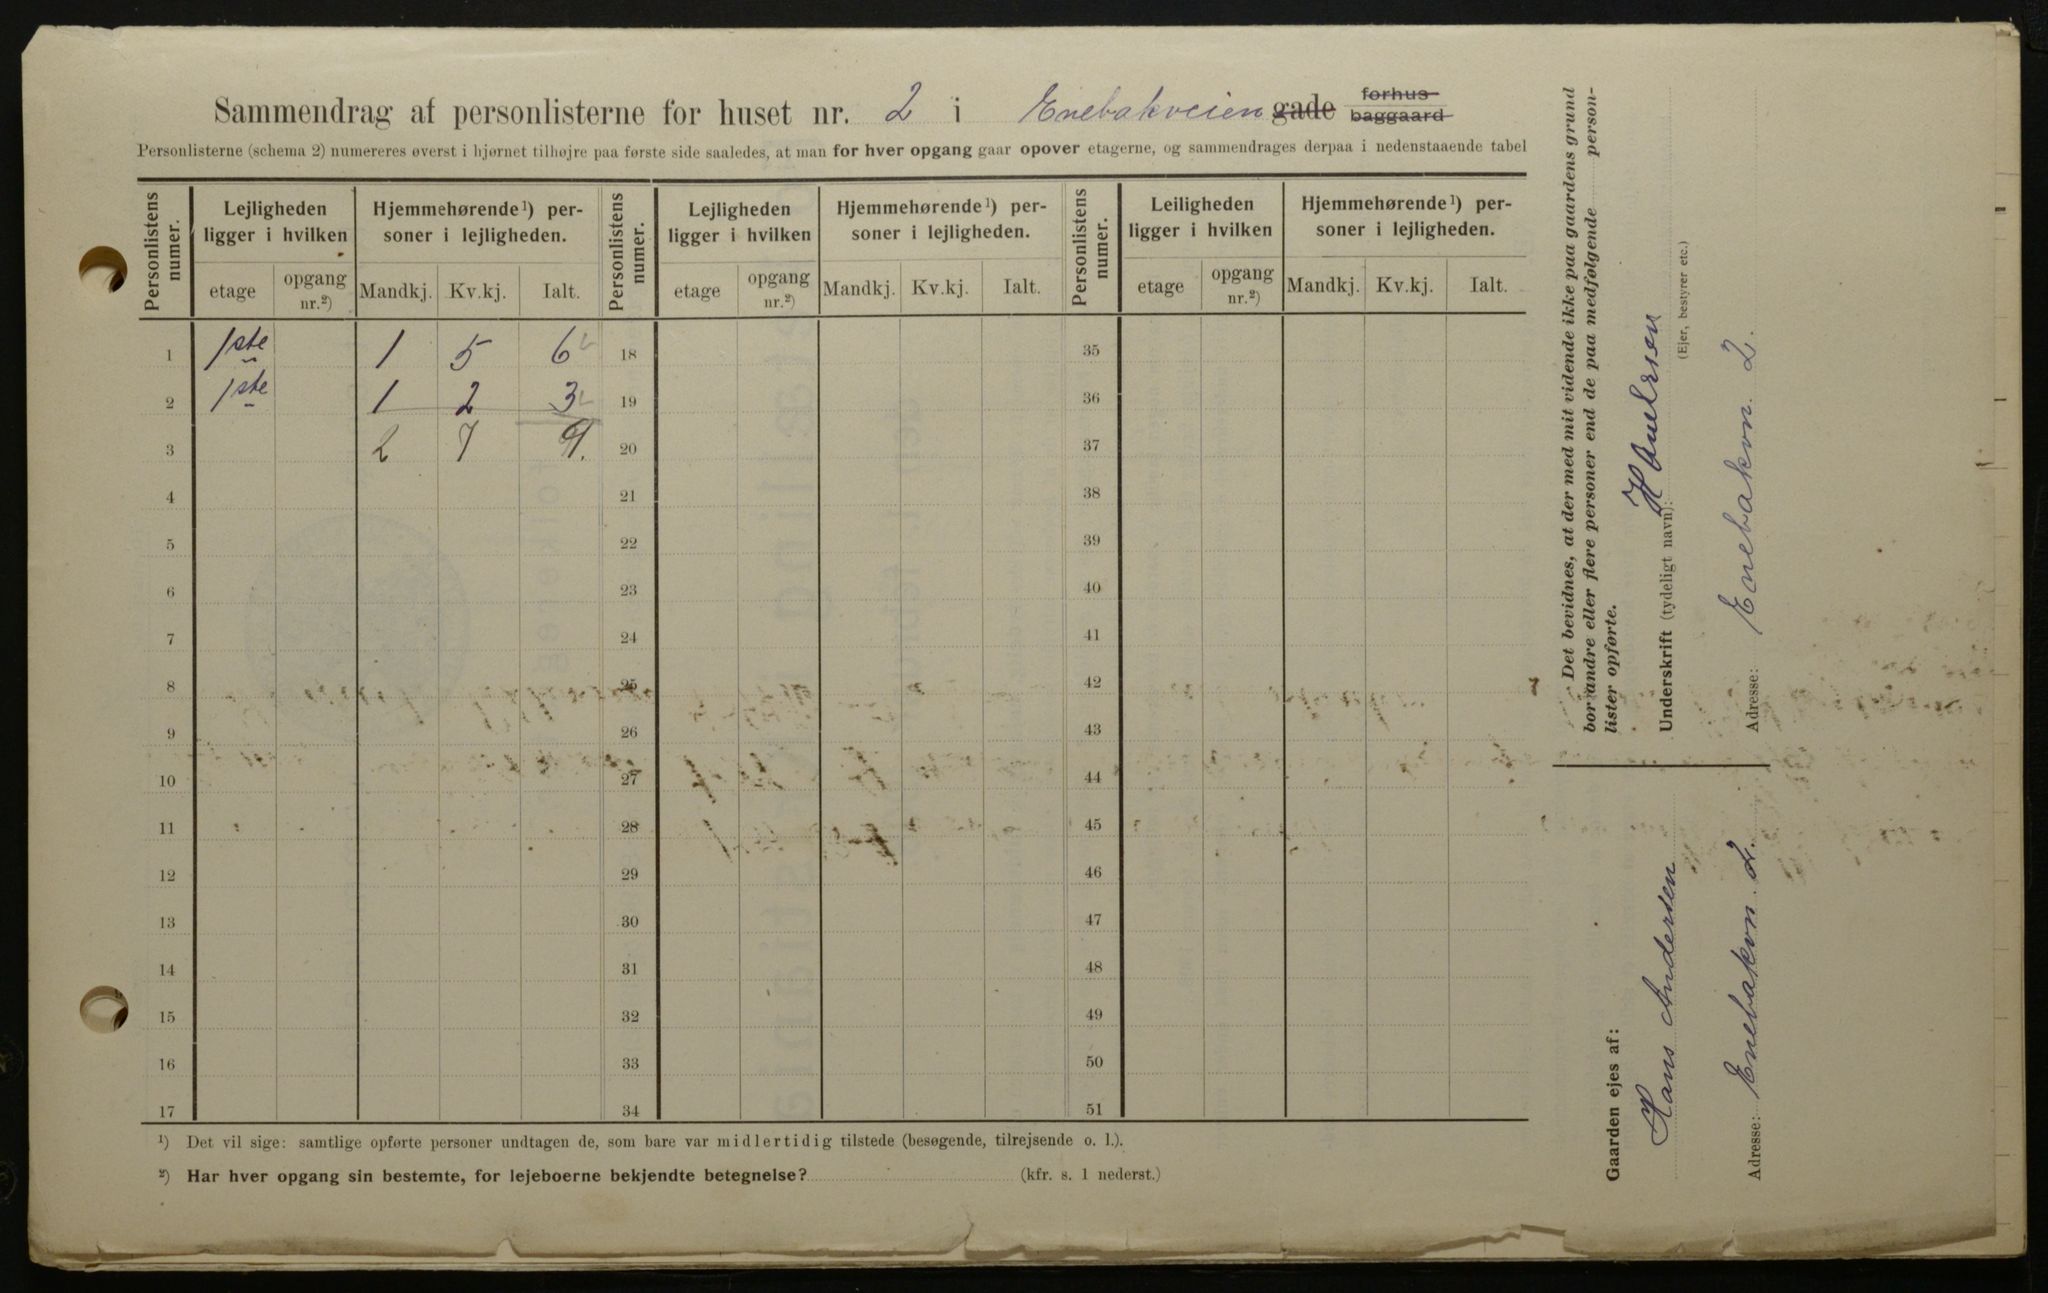 Sammendrag af personlisterne for huset nr. 2 i Enebakveien gade forhus baggaard
Personlisterne (schema 2) numereres øverst i hjørnet tilhøjre paa første side saaledes, at man for hver opgang gaar opover etagerne, og sammendrages derpaa i nedenstaaende tabel
Personlistens numer. Lejligheden ligger i hvilken Hjemmehørende¹) personer i lejligheden. Personlistens numer. Lejligheden ligger i hvilken Hjemmehørende¹) personer i lejligheden. Personlistens numer. Leiligheden ligger i hvilken Hjemmehørende¹) personer i lejligheden.
etage opgang nr.²) Mandkj. Kv.kj. Ialt. etage opgang nr.²) Mandkj. Kv.kj. Ialt. etage opgang nr.²) Mandkj. Kv.kj. Ialt.
1 1ste 1 5 6 18 35
2 1ste 1 2 3 19 36
3 2 7 9. 20 37
4 21 38
5 22 39
6 23 40
7 24 41
8 25 42
9 26 43
10 27 44
11 28 45
12 29 46
13 30 47
14 31 48
15 32 49
16 33 50
17 34 51
¹) Det vil sige: samtlige opførte personer undtagen de, som bare var midlertidig tilstede (besøgende, tilrejsende o. l.).
²) Har hver opgang sin bestemte, for lejeboerne bekjendte betegnelse? (kfr. s. 1 nederst.)
Det bevidnes, at der med mit vidende ikke paa gaardens grund
bor andre eller flere personer end de paa medfølgende person-
lister opførte.
Underskrift (tydeligt navn):
(Ejer, bestyrer etc.)
Adresse: Enebakvn 2.
Gaarden ejes af:
Hans Andersen
Adresse: Enebakvn 2.